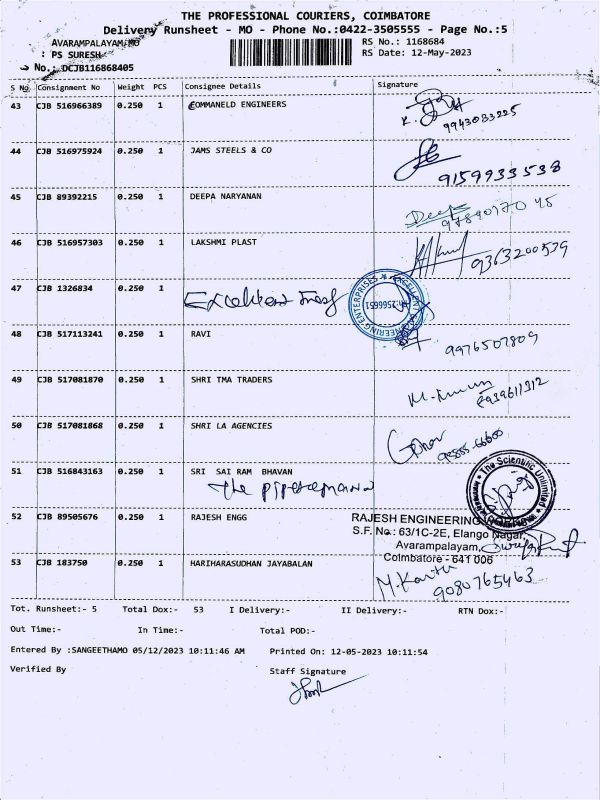 THE PROFESSIONAL COURIERS, COIMBATORE
Delivery Runsheet - MO - Phone No.:0422-3505555 - Page No.:5
AVARAMPALAYAM,MO
RS No.: 1168684
: PS SURESH
RS Date: 12-May-2023
No.: DCJB116868405
S No Consignment No Weight PCS Consignee Details Signature
43 CJB 516966389 0.250 1 COMMANELD ENGINEERS
9943033225
44 CJB 516975924 0.250 1 JAMS STEELS & CO
9159933538
45 CJB 89392215 0.250 1 DEEPA NARYANAN Deepa
46 CJB 516957303 0.250 1 LAKSHMI PLAST
9363200539
47 CJB 1326834 0.250 1 Excellent
EXCELLENT ENGINEERING ENTERPRISES
2566651
48 CJB 517113241 0.250 1 RAVI
9976507809
49 CJB 517081870 0.250 1 SHRI TMA TRADERS
50 CJB 517081868 0.250 1 SHRI LA AGENCIES
51 CJB 516843163 0.250 1 SRI SAI RAM BHAVAN
The
The Scientific Unlimited
52 CJB 89505676 0.250 1 RAJESH ENGG
RAJESH ENGINEERING WORKS
S.F. No.: 63/1C-2E, Elango Nagar,
Avarampalayam,
Coimbatore - 641 006
53 CJB 183750 0.250 1 HARIHARASUDHAN JAYABALAN
9080765463
Tot. Runsheet:- 5 Total Dox:- 53 I Delivery:- II Delivery:- RTN Dox:-
Out Time:- In Time:- Total POD:-
Entered By :SANGEETHAMO 05/12/2023 10:11:46 AM Printed On: 12-05-2023 10:11:54
Verified By Staff Signature